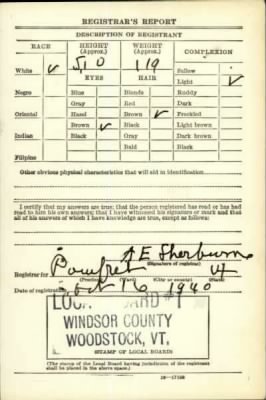 REGISTRAR'S REPORT
DESCRIPTION OF REGISTRANT
RACE HEIGHT (Approx.) WEIGHT (Approx.) COMPLEXION
White ✓ 5 10 119 Sallow
EYES HAIR Light ✓
Negro Blue Blonde Ruddy
Gray Red Dark
Oriental Hazel Brown ✓ Freckled
Brown ✓ Black Light brown
Indian Black Gray Dark brown
Bald Black
Filipino
Other obvious physical characteristics that will aid in identification
I certify that my answers are true; that the person registered has read or has had
read to him his own answers; that I have witnessed his signature or mark and that
all of his answers of which I have knowledge are true, except as follows:
A E Sherburne
(Signature of registrar)
Registrar for Pomfret Vt
(Precinct) (City or county) (State)
Date of registration Oct 16 1940
LOCAL BOARD #1
WINDSOR COUNTY
WOODSTOCK, VT.
(STAMP OF LOCAL BOARD)
(The stamp of the Local Board having jurisdiction of the registrant
shall be placed in the above space.)